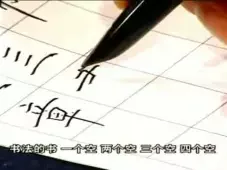 三
书法的书 一个空 两个空 三个空 四个空